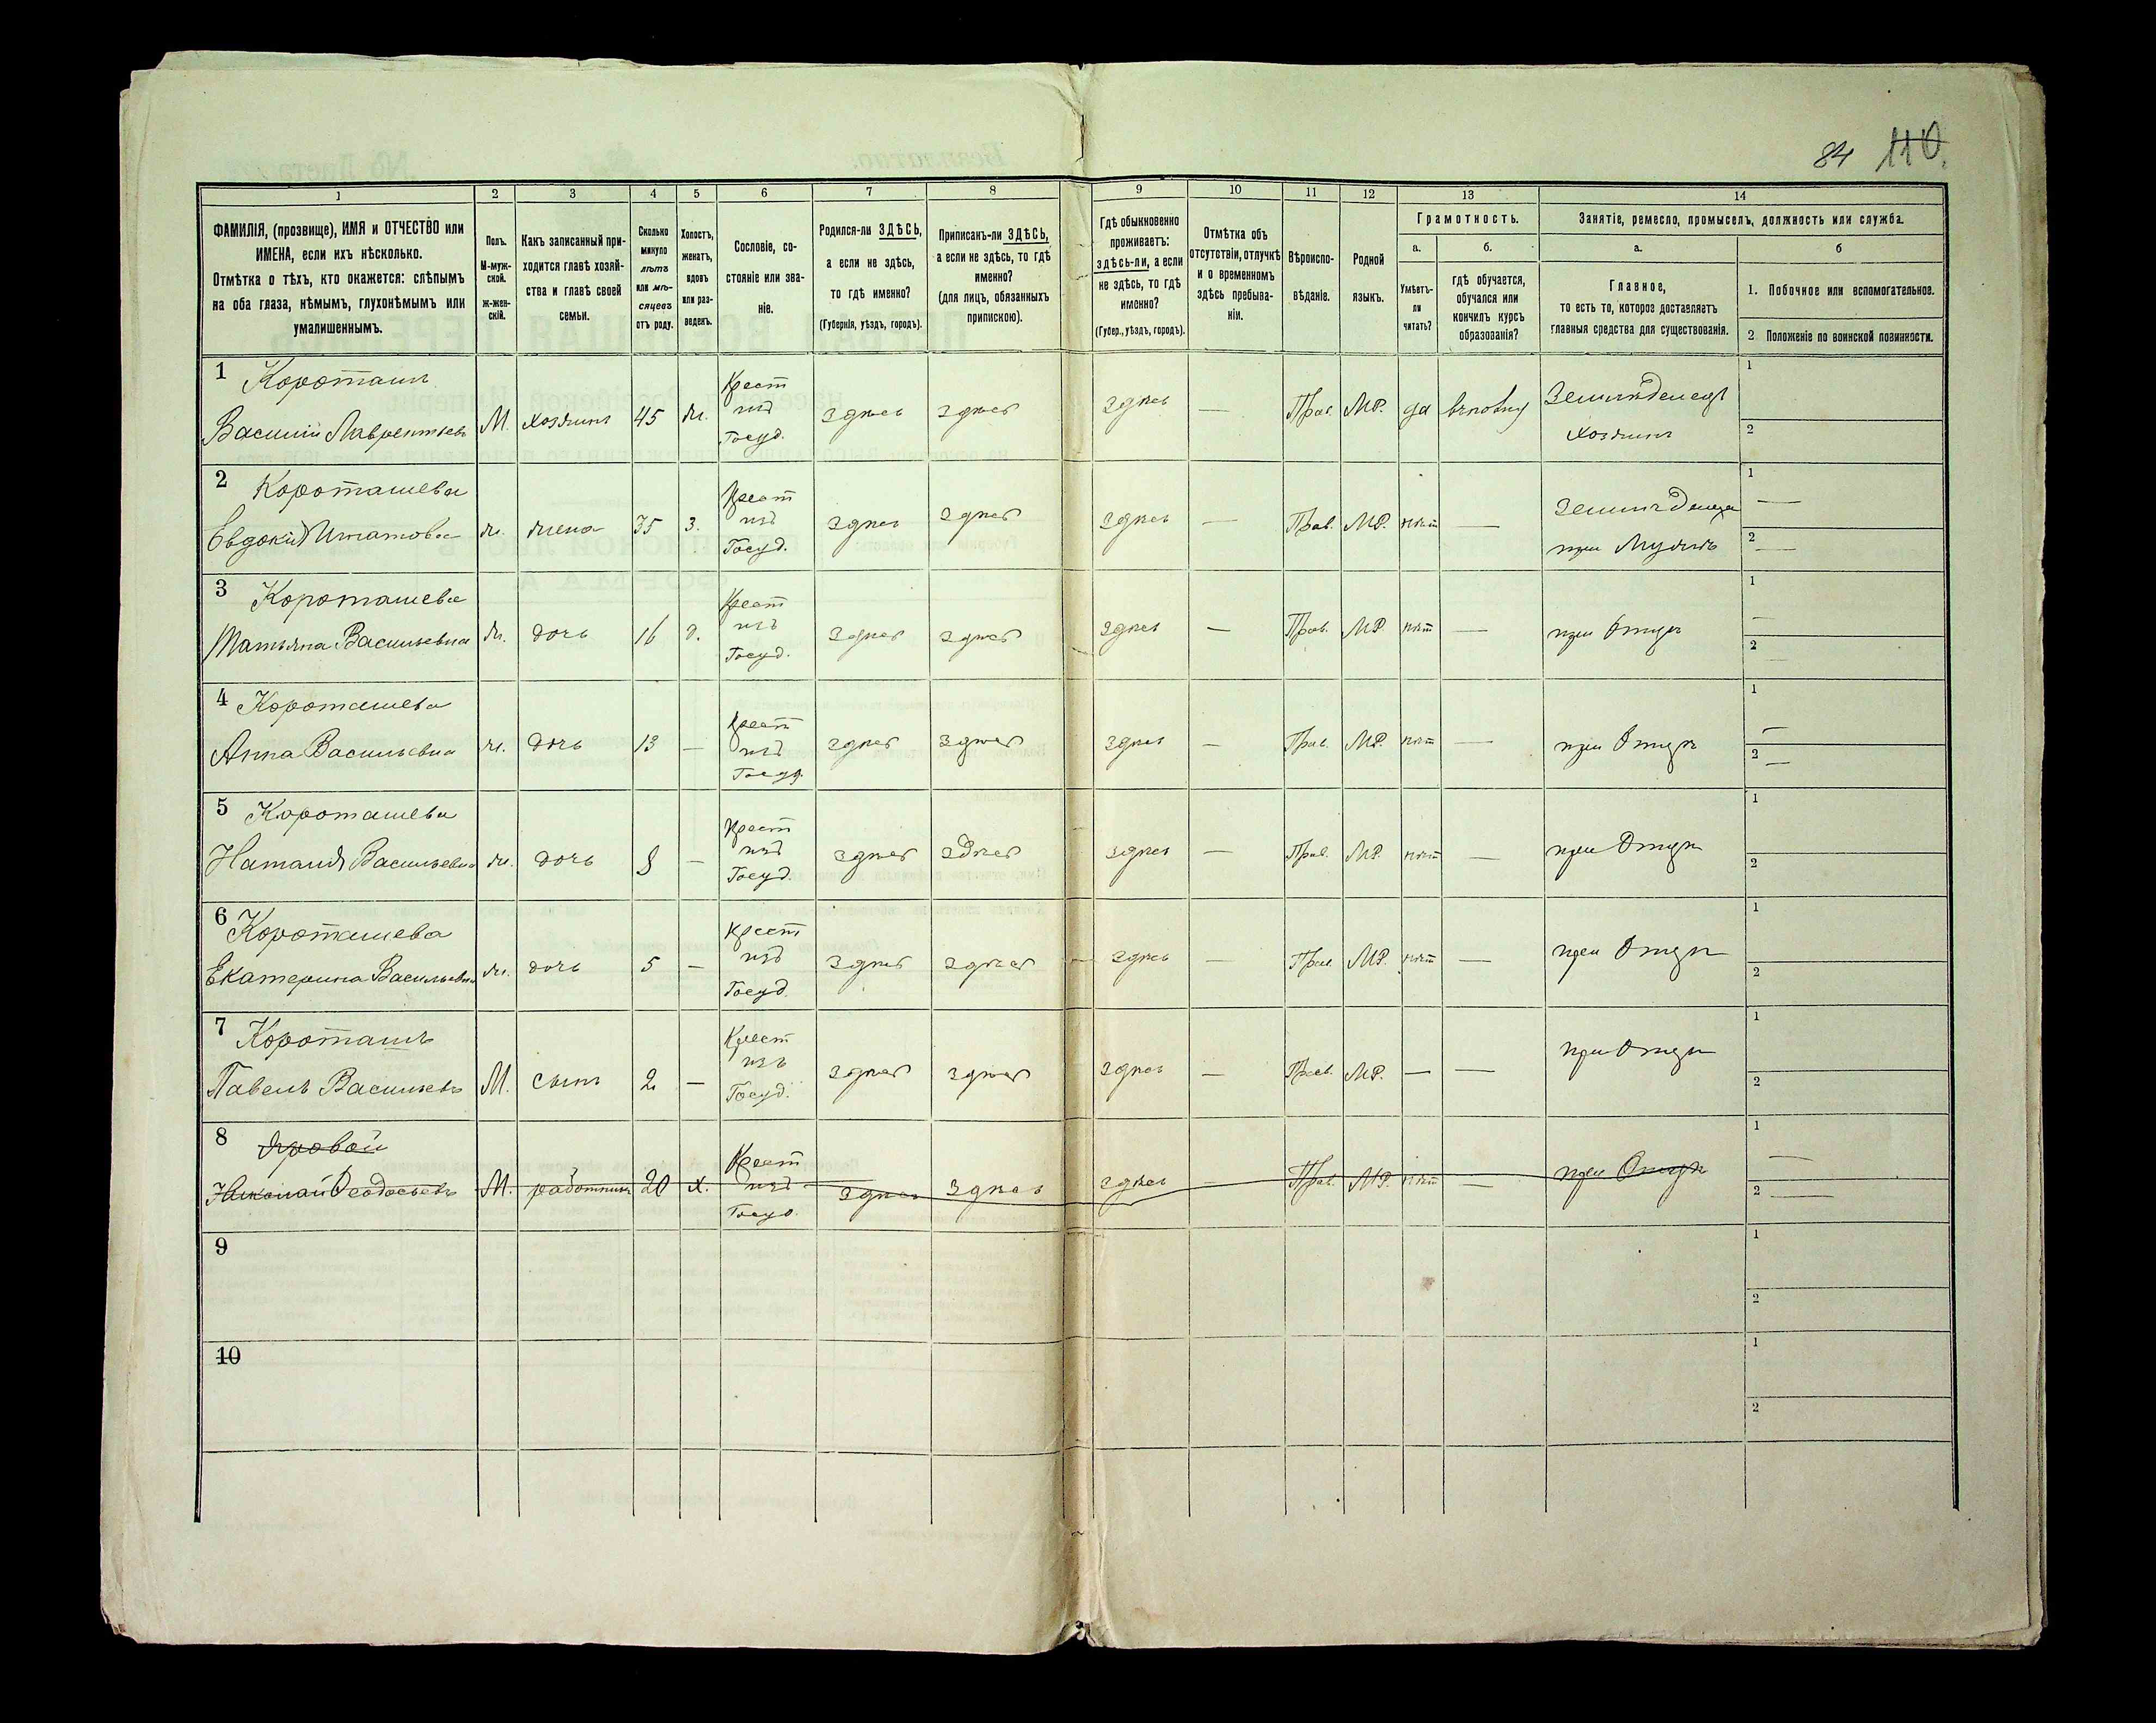 84 110.
1 2 3 4 5 6 7 8 9 10 11 12 13 14
ФАМИЛІЯ, (прозвище), ИМЯ и ОТЧЕСТВО или
ИМЕНА, если ихъ нѣсколько.
Отмѣтка о тѣхъ, кто окажется: слѣпымъ
на оба глаза, нѣмымъ, глухонѣмымъ или
умалишеннымъ.
Полъ.
М-муж-
ской.
Ж-жен-
скій.
Какъ записанный при-
ходится главѣ хозяй-
ства и главѣ своей
семьи.
Сколько
минуло
лѣтъ
или мѣ-
сяцевъ
отъ роду.
Холостъ,
женатъ,
вдовъ
или раз-
веденъ.
Сословіе, со-
стояніе или зва-
ніе.
Родился-ли ЗДѢСЬ,
а если не здѣсь,
то гдѣ именно?
(Губернія, уѣздъ, городъ).
Приписанъ-ли ЗДѢСЬ,
а если не здѣсь, то гдѣ
именно?
(для лицъ, обязанныхъ
припискою).
Гдѣ обыкновенно
проживаетъ:
здѣсь-ли, а если
не здѣсь, то гдѣ
именно?
(Губер., уѣздъ, городъ).
Отмѣтка объ
отсутствіи, отлучкѣ
и о временномъ
здѣсь пребыва-
ніи.
Вѣроиспо-
вѣданіе.
Родной
языкъ.
Грамотность.
а.
Умѣетъ-
ли
читать?
б.
гдѣ обучается,
обучался или
кончилъ курсъ
образованія?
Занятіе, ремесло, промыселъ, должность или служба.
а.
Главное,
то есть то, которое доставляетъ
главныя средства для существованія.
б
1. Побочное или вспомогательное.
2 Положеніе по воинской повинности.
1 Короташъ
Василій Лаврентьевъ М. хозяинъ 45 ж. Крест изъ Госуд. здѣсь здѣсь здѣсь — Прав. МР. да Земледелецъ
хозяинъ
1
2
2 Короташева
Евдокія Игнатова ж. жена 35 з. Крест изъ Госуд. здѣсь здѣсь здѣсь — Прав. МР. нѣт —
при Мужѣ
1 —
2 —
3 Короташева
Татьяна Васильевна ж. дочь 16 д. Крест изъ Госуд. здѣсь здѣсь здѣсь — Прав. МР нѣт — при Отцѣ
1 —
2 —
4 Короташева
Анна Васильевна ж. дочь 13 — Крест изъ Госуд. здѣсь здѣсь здѣсь — Прав. МР. нѣт — при Отцѣ
1 —
2 —
5 Короташева
Наталія Васильевна ж. дочь 8 — Крест изъ Госуд. здѣсь здѣсь здѣсь — Прав. МР. нѣт — при Отцѣ
1
2
6 Короташева
Екатерина Васильевна ж. дочь 5 — Крест изъ Госуд. здѣсь здѣсь здѣсь — Прав. МР. нѣт — при Отцѣ
1
2
7 Короташъ
Павелъ Васильевъ М. сынъ 2 — Крест изъ Госуд. здѣсь здѣсь здѣсь — Прав. МР. — — при Отцѣ
1
2
8 Яровой
Николай Феодосьевъ М. работникъ 20 х. Крест изъ Госуд. здѣсь здѣсь здѣсь — Прав. МР. нѣт — при Отцѣ
1 —
2 —
9
1
2
10
1
2